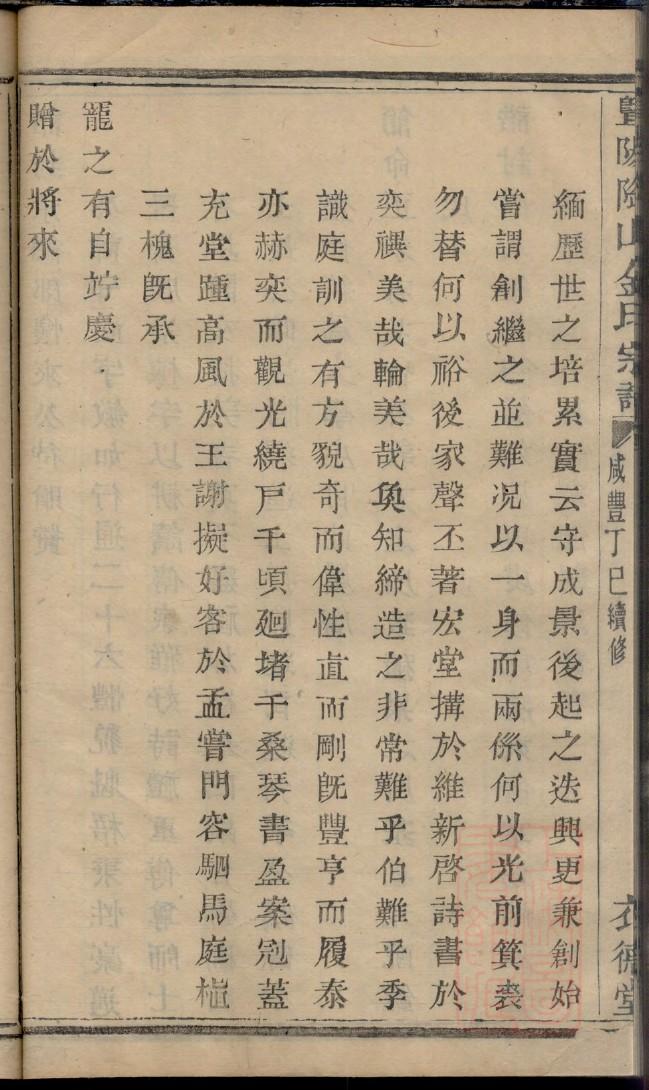 暨陽陰山金氏宗譜 咸豐丁巳續修 衣德堂
緬歷世之培累實云守成景後起之迭興更兼創始
嘗謂創繼之並難況以一身而兩係何以光前箕裘
勿替何以裕後家聲丕著宏堂搆於維新啓詩書於
奕禩美哉輪美哉奐知締造之非常難乎伯難乎季
識庭訓之有方貌奇而偉性直而剛旣豐亨而履泰
亦赫奕而觀光繞戶千頃廻堵千桑琴書盈案冠蓋
充堂踵高風於王謝擬好客於孟嘗門容駟馬庭植
三槐旣承
寵之有自竚慶
贈於將來